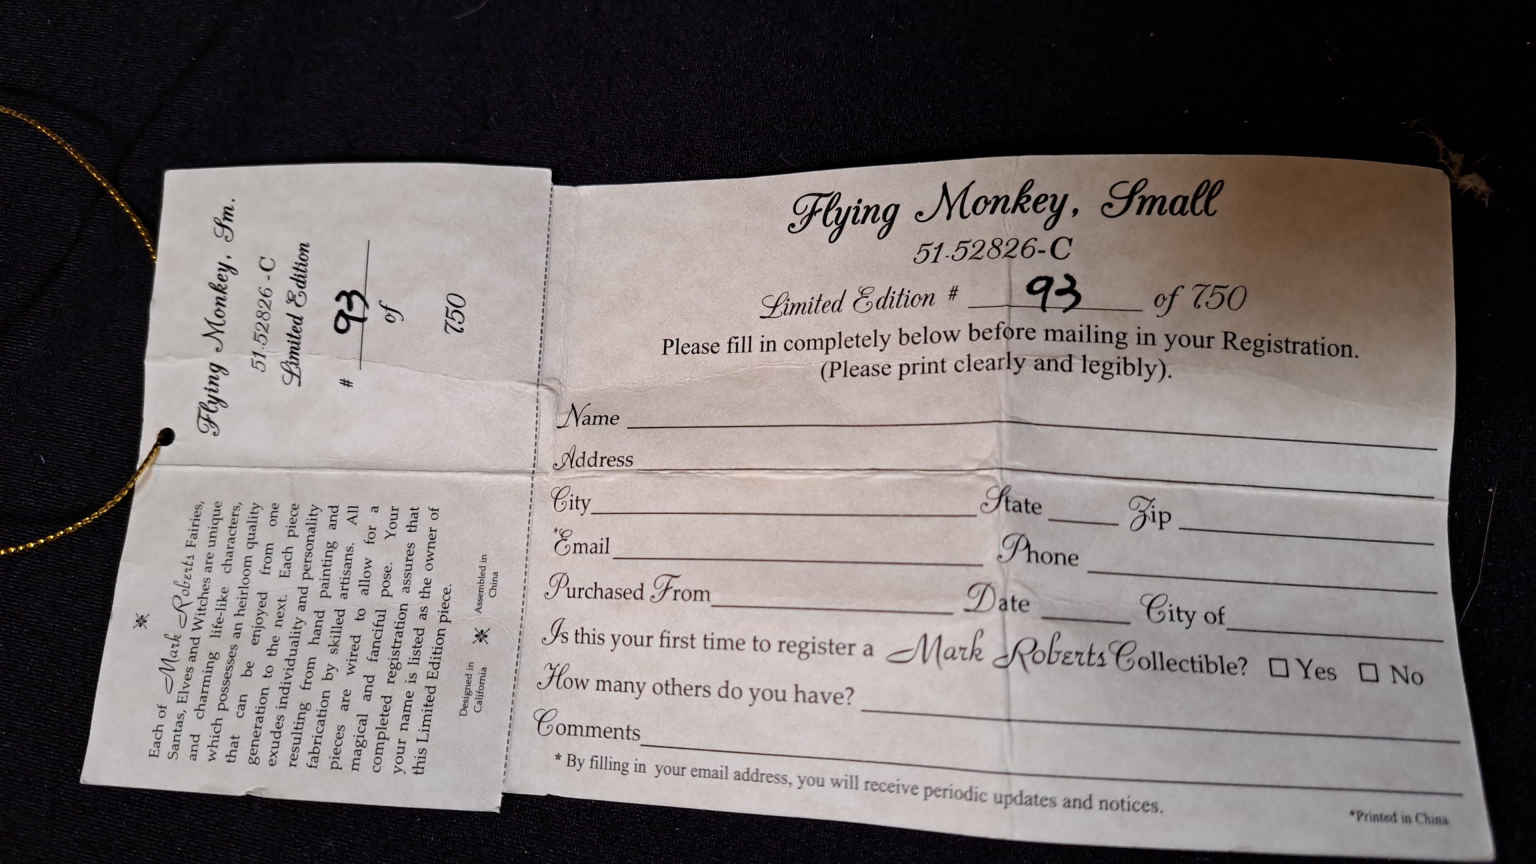 Flying Monkey, Sm.
51-52826 -C
Limited Edition
# 93
of
750
※
Each of Mark Roberts Fairies,
Santas, Elves and Witches are unique
and charming life-like characters,
which possesses an heirloom quality
that can be enjoyed from one
generation to the next. Each piece
exudes individuality and personality
resulting from hand painting and
fabrication by skilled artisans. All
pieces are wired to allow for a
magical and fanciful pose. Your
completed registration assures that
your name is listed as the owner of
this Limited Edition piece.
Designed in California ※ Assembled in China
Flying Monkey, Small
51-52826-C
Limited Edition # 93 of 750
Please fill in completely below before mailing in your Registration.
(Please print clearly and legibly).
Name
Address
City State Zip
*Email Phone
Purchased From Date City of
Is this your first time to register a Mark Roberts Collectible? ☐ Yes ☐ No
How many others do you have?
Comments
* By filling in your email address, you will receive periodic updates and notices.
*Printed in China